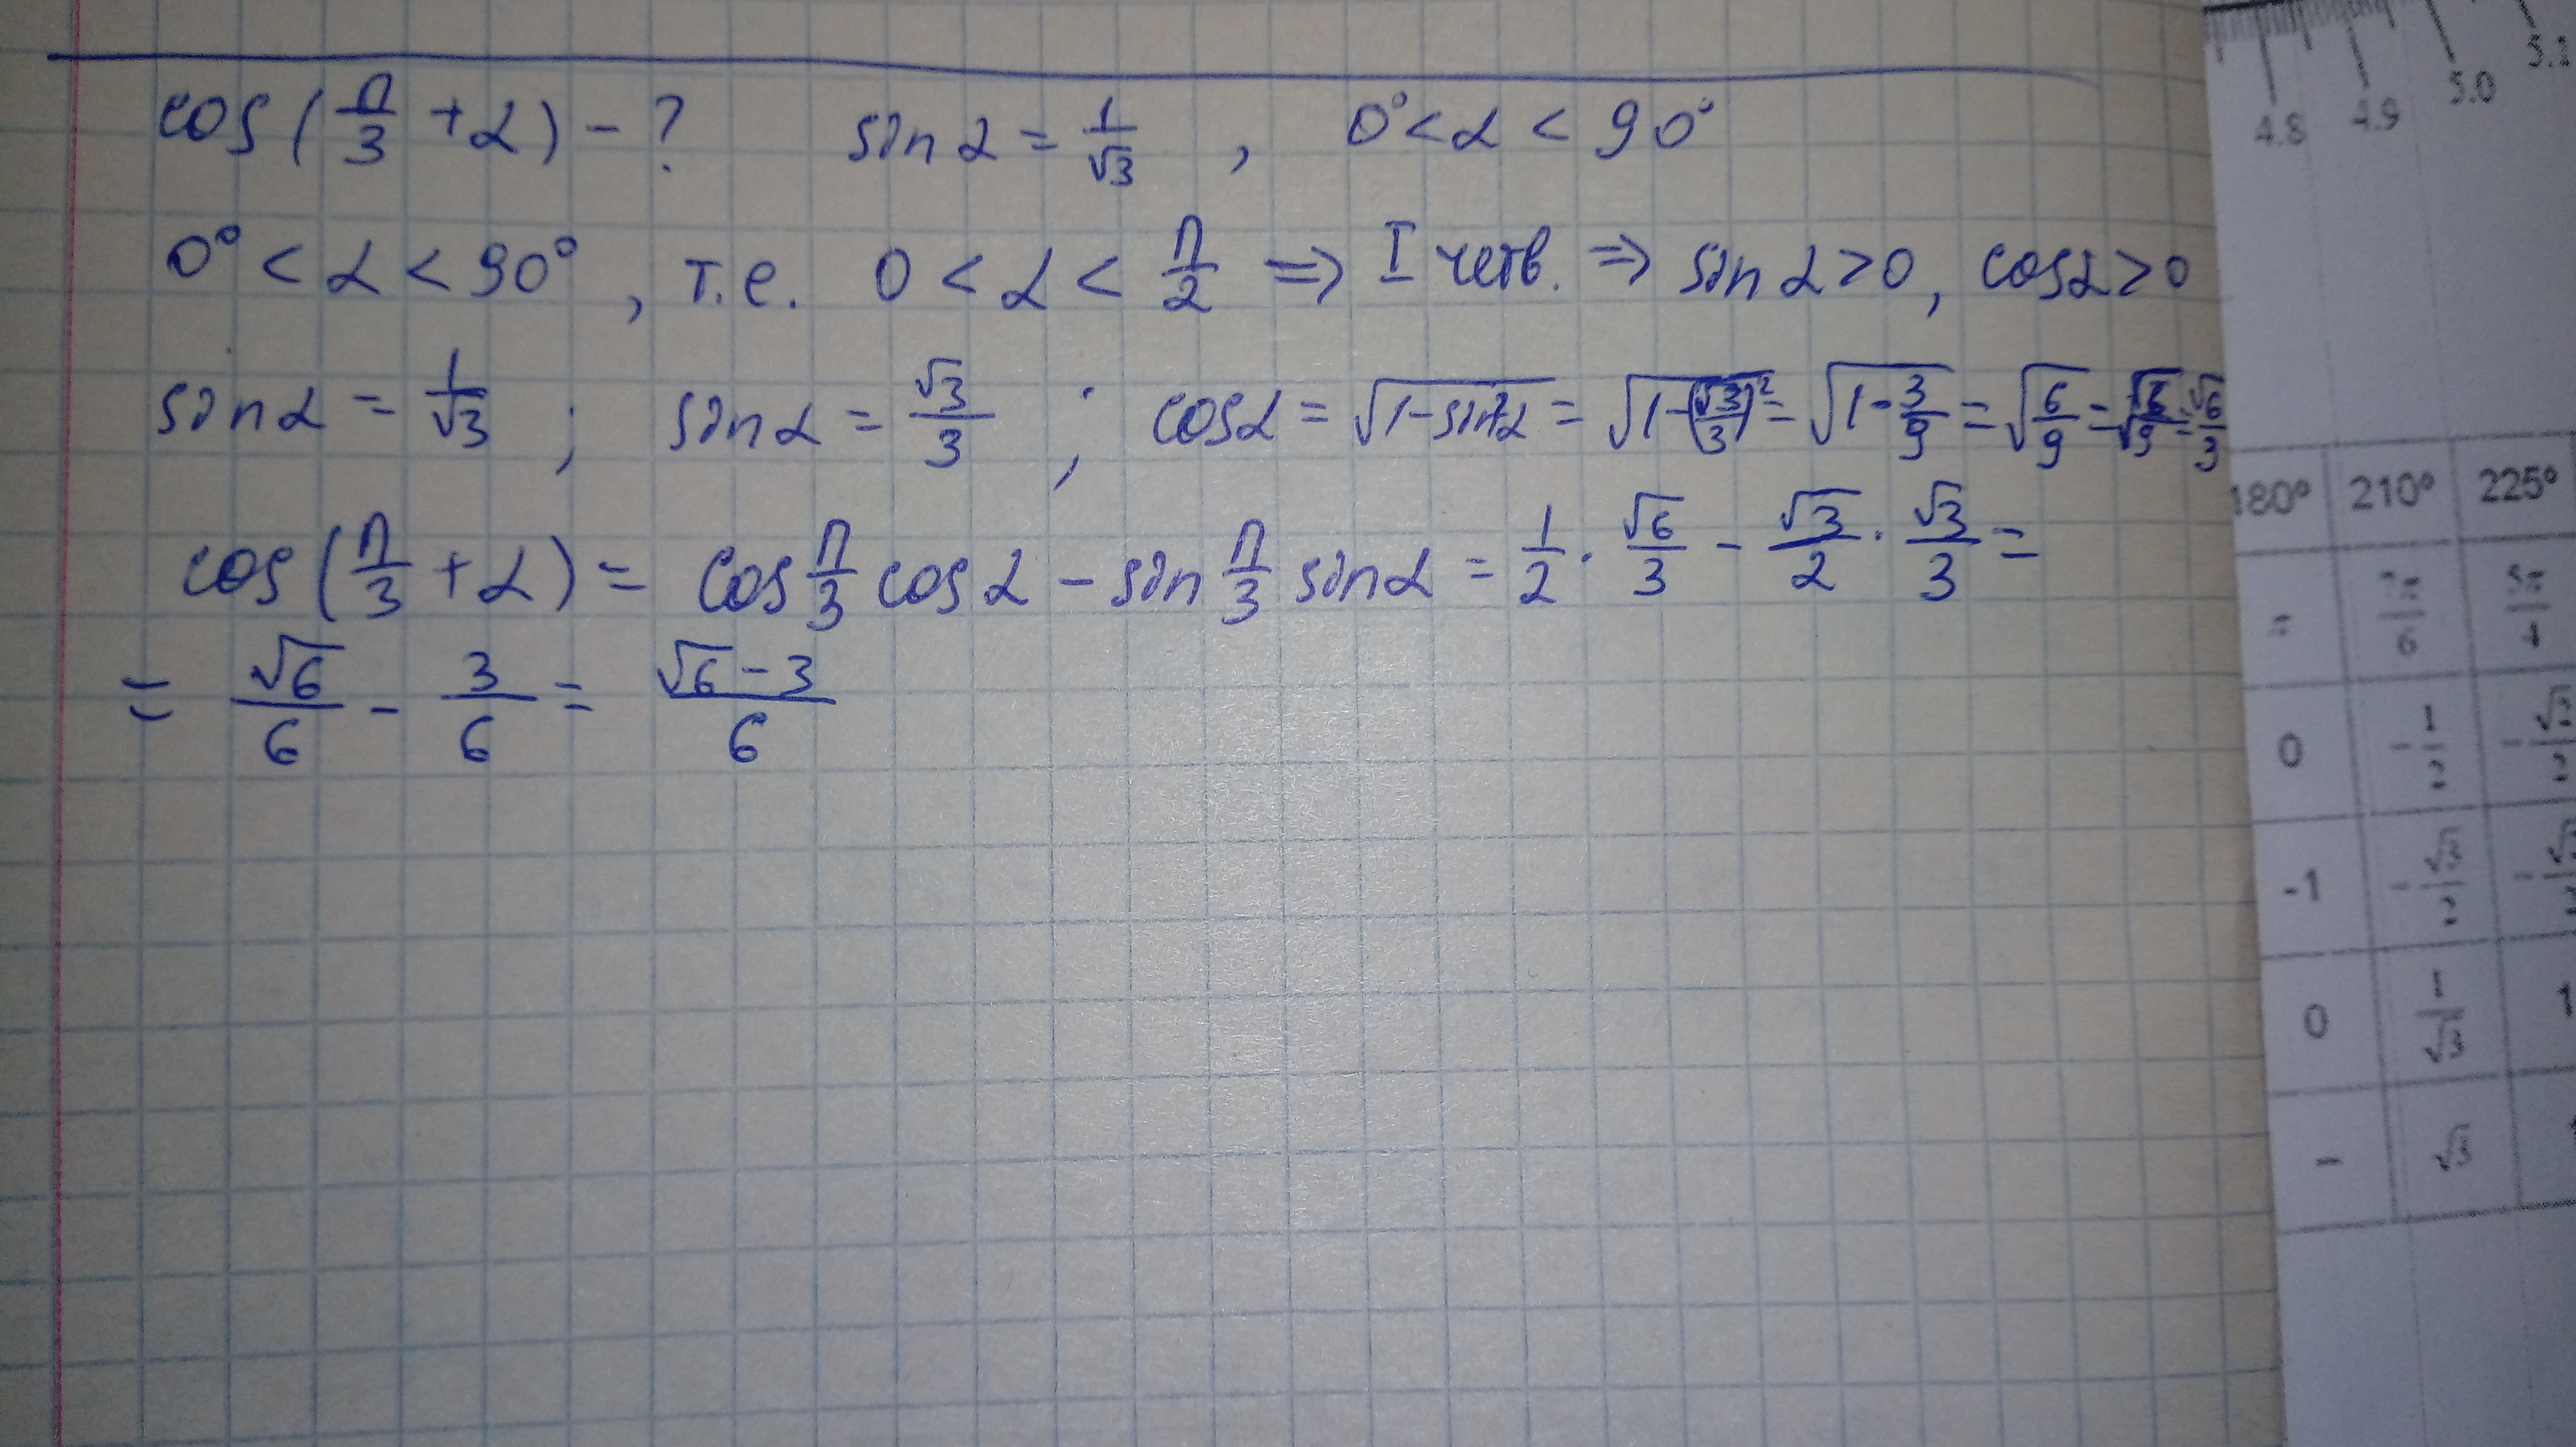 cos(π/3 + α) - ? sin α = 1/√3 , 0° < α < 90°
0° < α < 90° , т.е. 0 < α < π/2 ⇒ I четв. ⇒ sin α > 0, cos α > 0
sin α = 1/√3 ; sin α = √3/3 ; cos α = √(1-sin²α) = √(1-(√3/3)²) = √(1-3/9) = √(6/9) = √6/√9 = √6/3
cos(π/3 + α) = cos π/3 cos α - sin π/3 sin α = 1/2 · √6/3 - √3/2 · √3/3 =
= √6/6 - 3/6 = (√6-3)/6
4.8 4.9 5.0 5.1
180° 210° 225°
π 7π/6 5π/4
0 -1/2 -√2/2
-1 -√3/2 -√2/2
0 1/√3 1
- √3